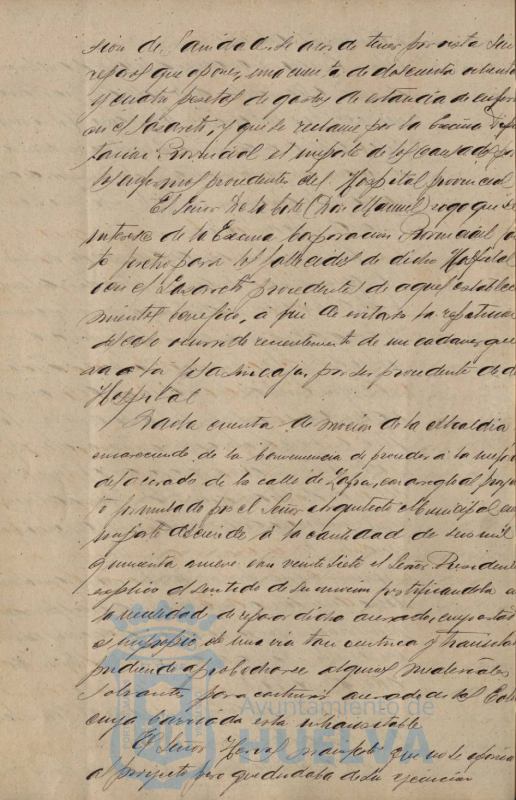 sion de Sanidad. Se acordó tener por vista sin
reparos que oponer, una cuenta de doscientas ochenta
y cuatro pesetas de gastos de estancia de enfer
en el Lazareto, y que se reclame por la Excma Dipu
tacion Provincial el importe de los causados por
los enfermos procedentes del Hospital provincial
El Señor De la Corte (Don Manuel) rogo que se
interese de la Excma Corporacion Provincial
to para los fallecidos de dicho Hospital
en el Lazareto procedentes de aquel estable
miento benefico, á fin de evitar la repeticion
del caso ocurrido recientemente de un cadaver que
a la fosa sin caja, por ser procedente de d
Hospital
Dada cuenta de mocion de la Alcaldia
encareciendo de la conveniencia de proceder á la mejora
del acerado de la calle de con arreglo al proyec
to formulado por el Señor Arquitecto Municipal cu
importe asciende á la cantidad de mil
quinientas nueve con veinte siete el Señor Presidente
explicó el sentido de su mocion justificandola
la necesidad de reparar dicho acerado,
é impropio de una via tan centrica y
pudiendo aprobecharse algunos materiales
sobrantes para continuar acerado del
cuya barriada esta intransitable
El Señor manifestó que no se oponia
al proyecto pero que dudaba de su ejecucion
Ayuntamiento de
HUELVA